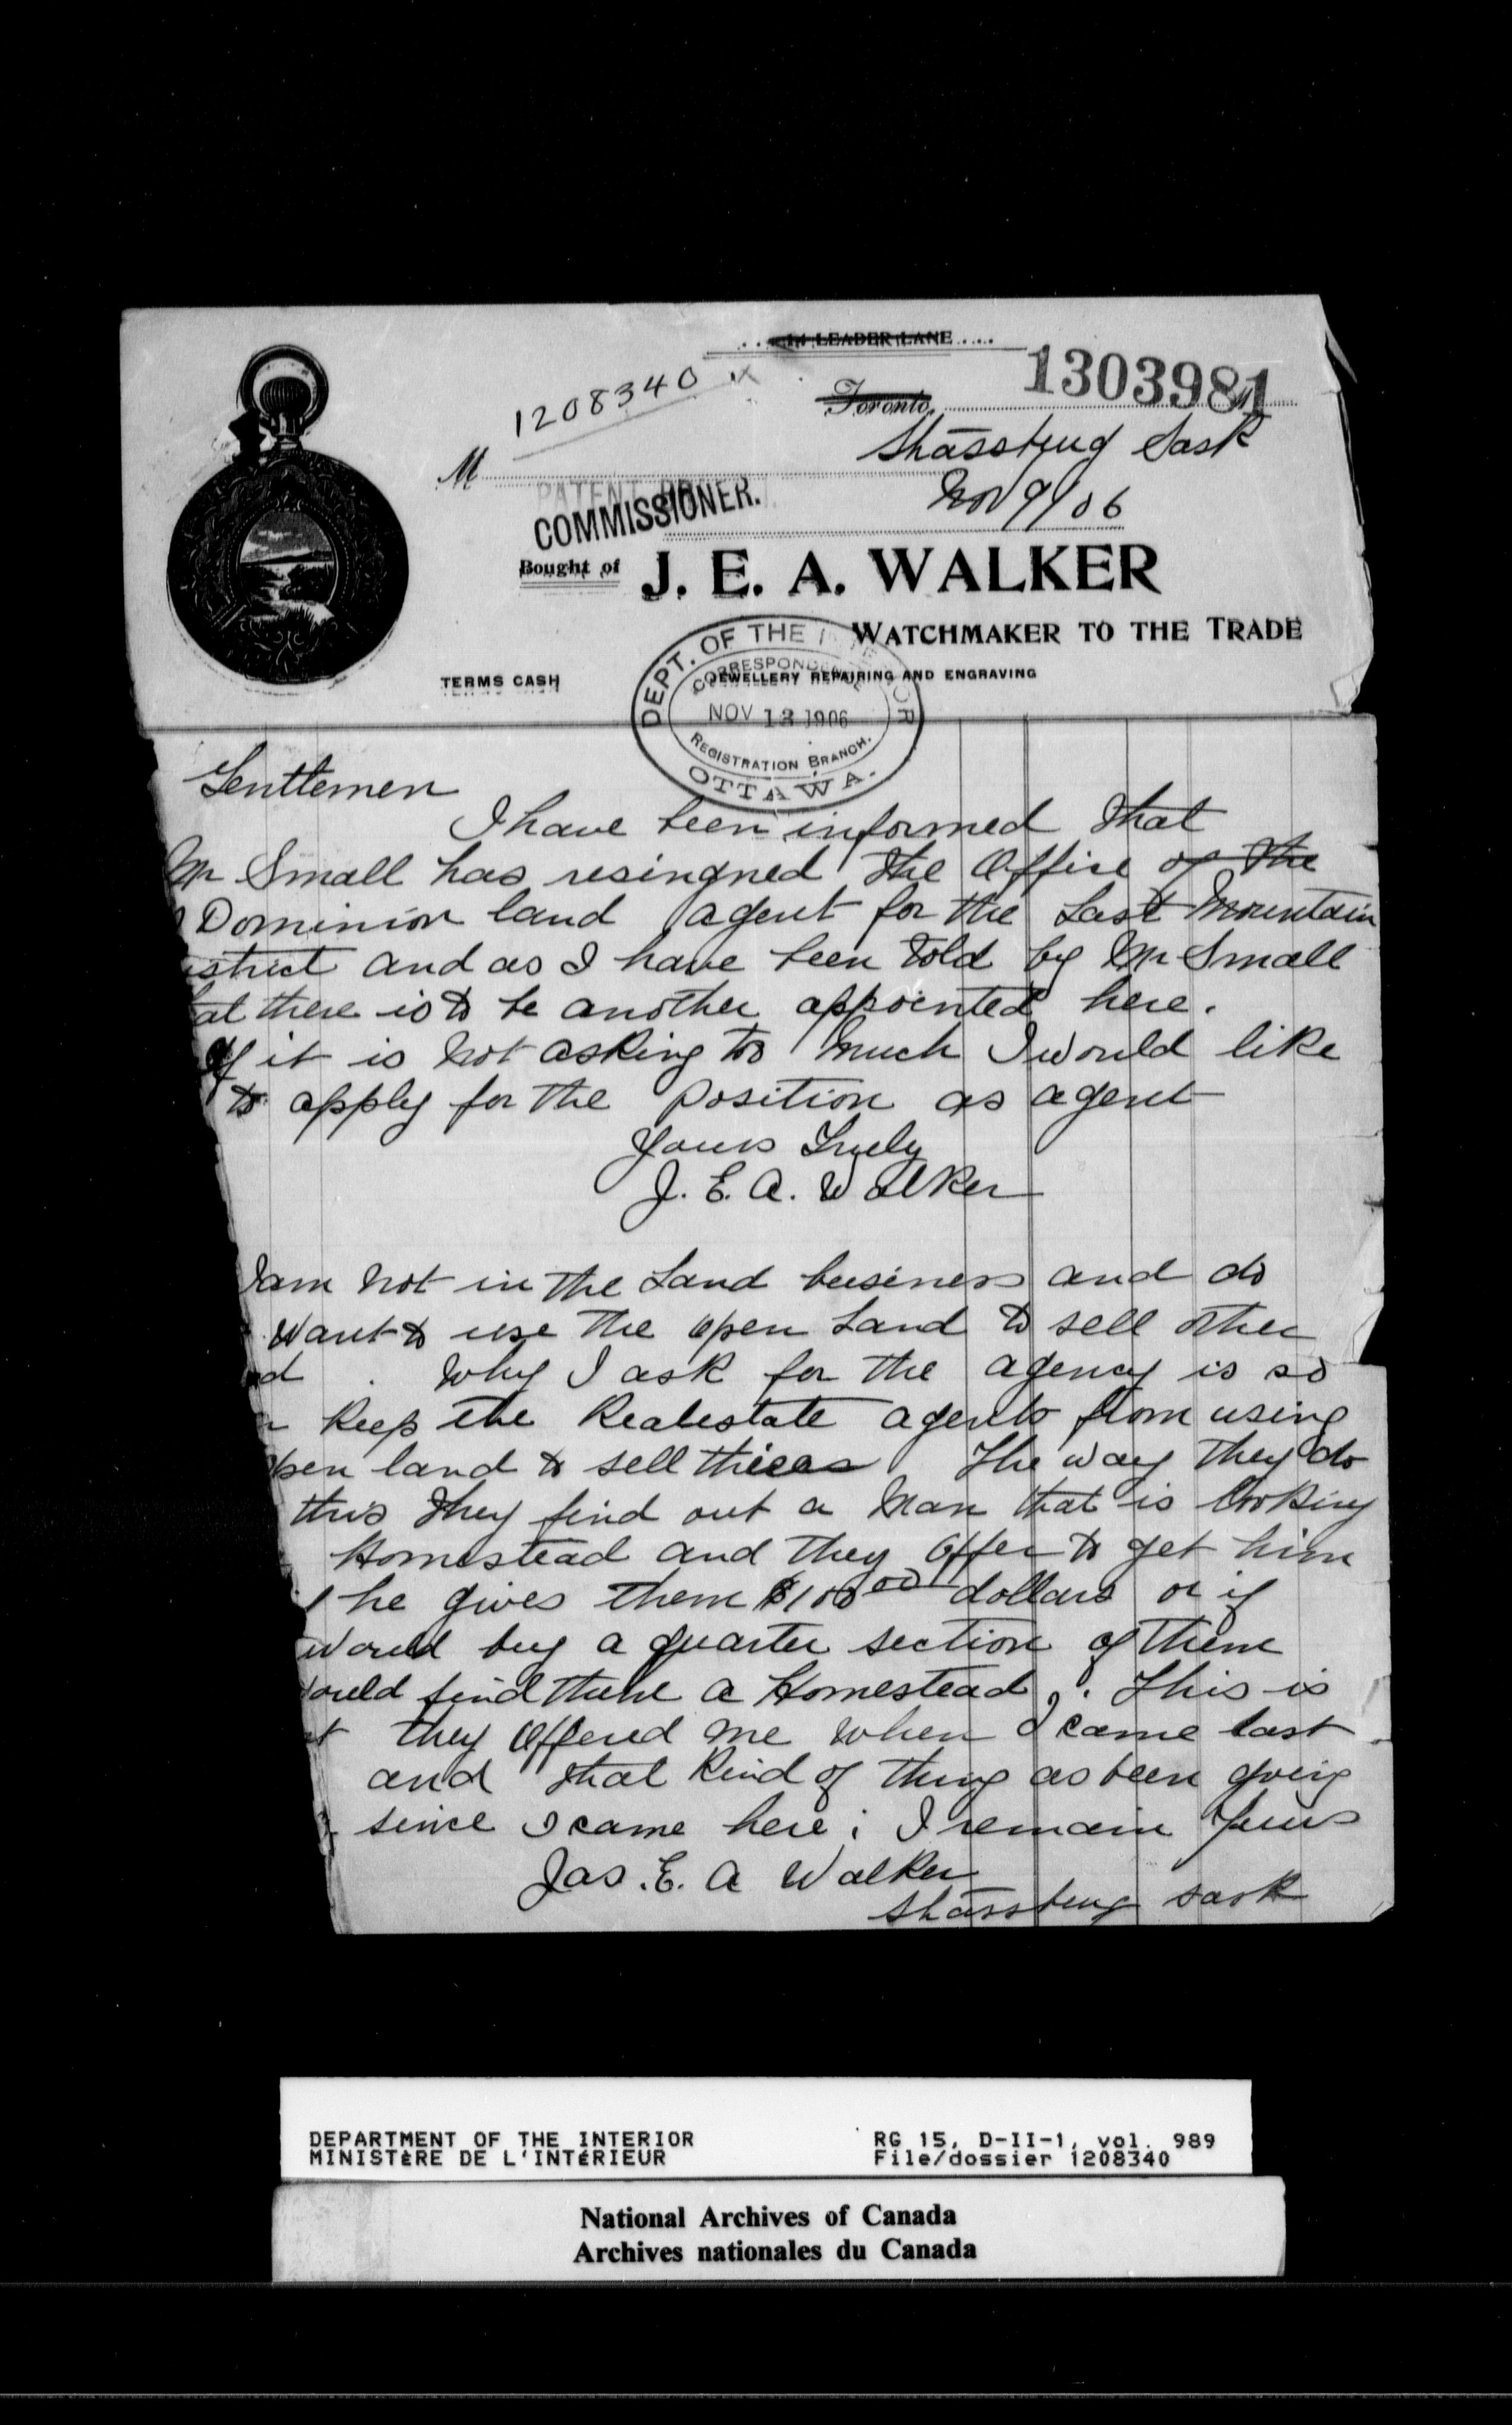 .... 14 LEADER LANE ....
1208340
1303981
Toronto,
Strassburg Sask
M
PATENT
COMMISSIONER.
Nov 9/06
Bought of J. E. A. WALKER
WATCHMAKER TO THE TRADE
TERMS CASH
JEWELLERY REPAIRING AND ENGRAVING
DEPT. OF THE INTERIOR
CORRESPONDENCE
NOV 13 1906
REGISTRATION BRANCH.
OTTAWA.
Gentlemen
I have been informed that
Mr Small has resingned the Office of the
Dominion land agent for the Last Mountain
istrict and as I have been told by Mr Small
at there is to be another appointed here.
If it is not asking to much I would like
to apply for the position as agent
Yours Truly
J. E. A. Walker
I am not in the Land business and do
want to use the open Land to sell other
nd. Why I ask for the agency is so
n keep the Realestate agents from using
open land to sell theirs The way they do
this they find out a man that is looking
Homestead and they offer to get him
he gives them $100 00 dollars or if
would buy a quarter section of them
ould find them a Homestead. This is
t they offered me when I came last
and that kind of thing as been going
since I came here; I remain Yours
Jas. E. A Walker
Strassburg Sask
DEPARTMENT OF THE INTERIOR
MINISTÈRE DE L'INTÉRIEUR
RG 15, D-II-1, vol. 989
File/dossier 1208340
National Archives of Canada
Archives nationales du Canada